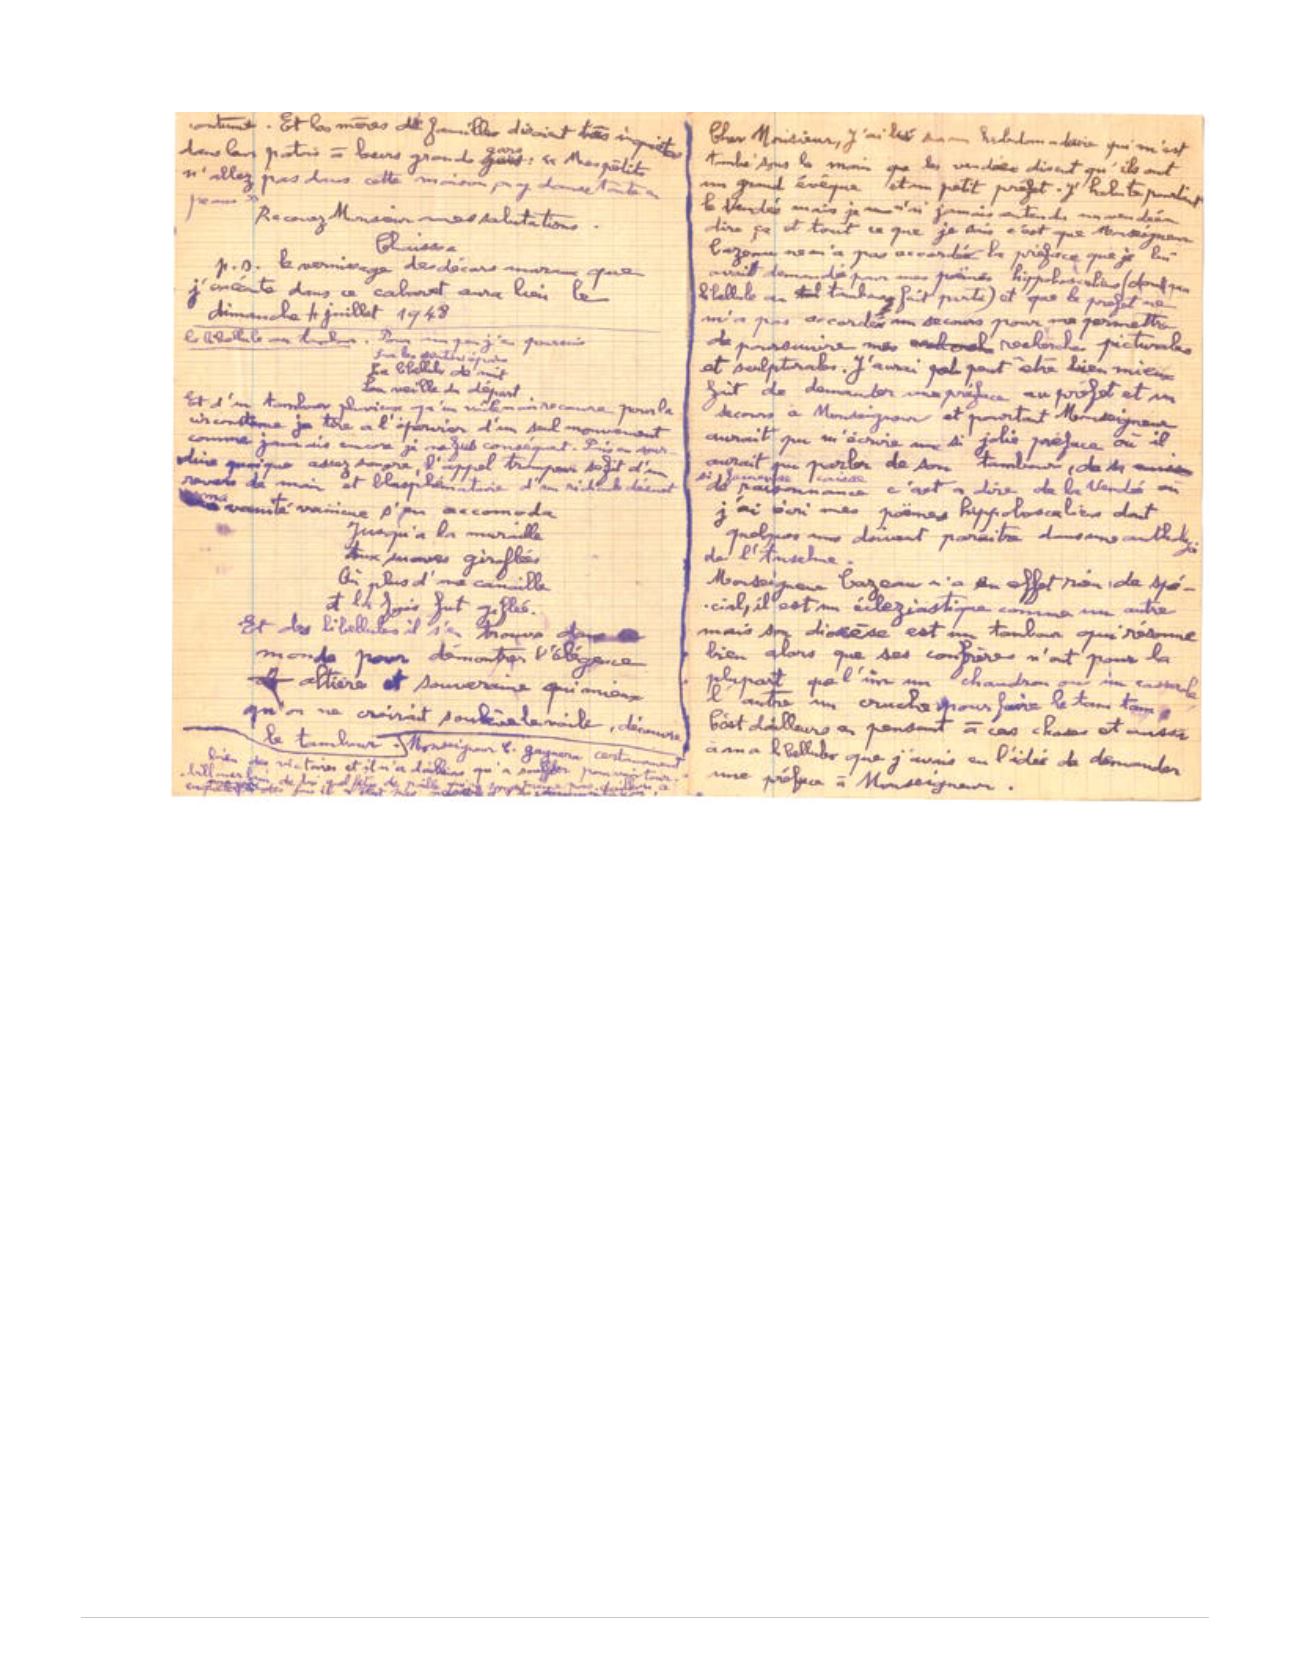 contume. Et les mères de familles disaient très inquiètes
dans leur patois à leurs grands gars : " Mes pétits
n'allez pas dans cette maison, on y danse toute a
peau "
Recevez Monsieur mes salutations.
Chaissa
p.s. le vernissage des décors muraux que
j'exécute dans ce cabaret aura lieu le
dimanche 4 juillet 1948
la libellule au tambour.
La libellule de nuit
L'an veille du départ
Et d'un tambour pluvieux qu'un vilain recouvre pour la
circonstance je tire a l'épervier d'un seul mouvement
comme jamais encore je ne fus conséquent. Puis en sour-
dine quoique assez sonore, l'appel trompeur se fit d'un
revers de main et blasphématoire d'un ridicule décent
ma vanité vraincue s'en accomoda
Jusqu'a la muraille
Aux suaves giroflées
Où plus d'une canaille
et la fois fut giflée.
Et des libellules il s'en trouva dans ce
monde pour démontrer l'élégence
altière et souveraine qui mieux
qu'on ne croirait soulève le voile, découvre
le tambour. Monseigneur C. gagnera certainement
bien des victoires et il n'a dailleurs qu'a souffler pour
Cher Monsieur, J'ai lu dans un hebdomadaire qui m'est
tombé sous la main que les vendéens disent qu'ils ont
un grand évêque et un petit préfet. J'habite pourtant
la Vendée mais je n'ai jamais entendu un vendéen
dire ça et tout ce que je sais c'est que Monseigneur
Cazeau ne m'a pas accordé la préface que je lui
avait demandé pour mes poèmes hippoboscaliens (dont ma
libellule au tambour fait partie) et que le préfet ne
m'a pas accordé un secours pour me permettre
de poursuivre mes recherches picturales
et sculpturales. J'aurai peut être bien mieux
fait de demander une préface au préfet et un
secours à Monseigneur et pourtant Monseigneur
aurait pu m'écrire une si jolie préface où il
aurait pu parler de son tambour, de sa
si fameuse caisse
de raisonnance c'est a dire de la Vendé où
j'ai écri mes poèmes hippoboscaliens dont
quelques uns doivent paraitre dans une antholgi
de l'Insulme.
Monseigneur Cazeau n'a en effet rien de spé-
cial, il est un écléziastique comme un autre
mais son diocèse est un tambour qui résonne
bien alors que ses confrères n'ont pour la
plupart que l'un un chaudron ou un casserole,
l'autre un cruche pour faire le tam tam.
C'est dailleurs en pensant à ces choses et aussi
à ma libellule que j'avais eu l'idée de demander
une préface à Monseigneur.